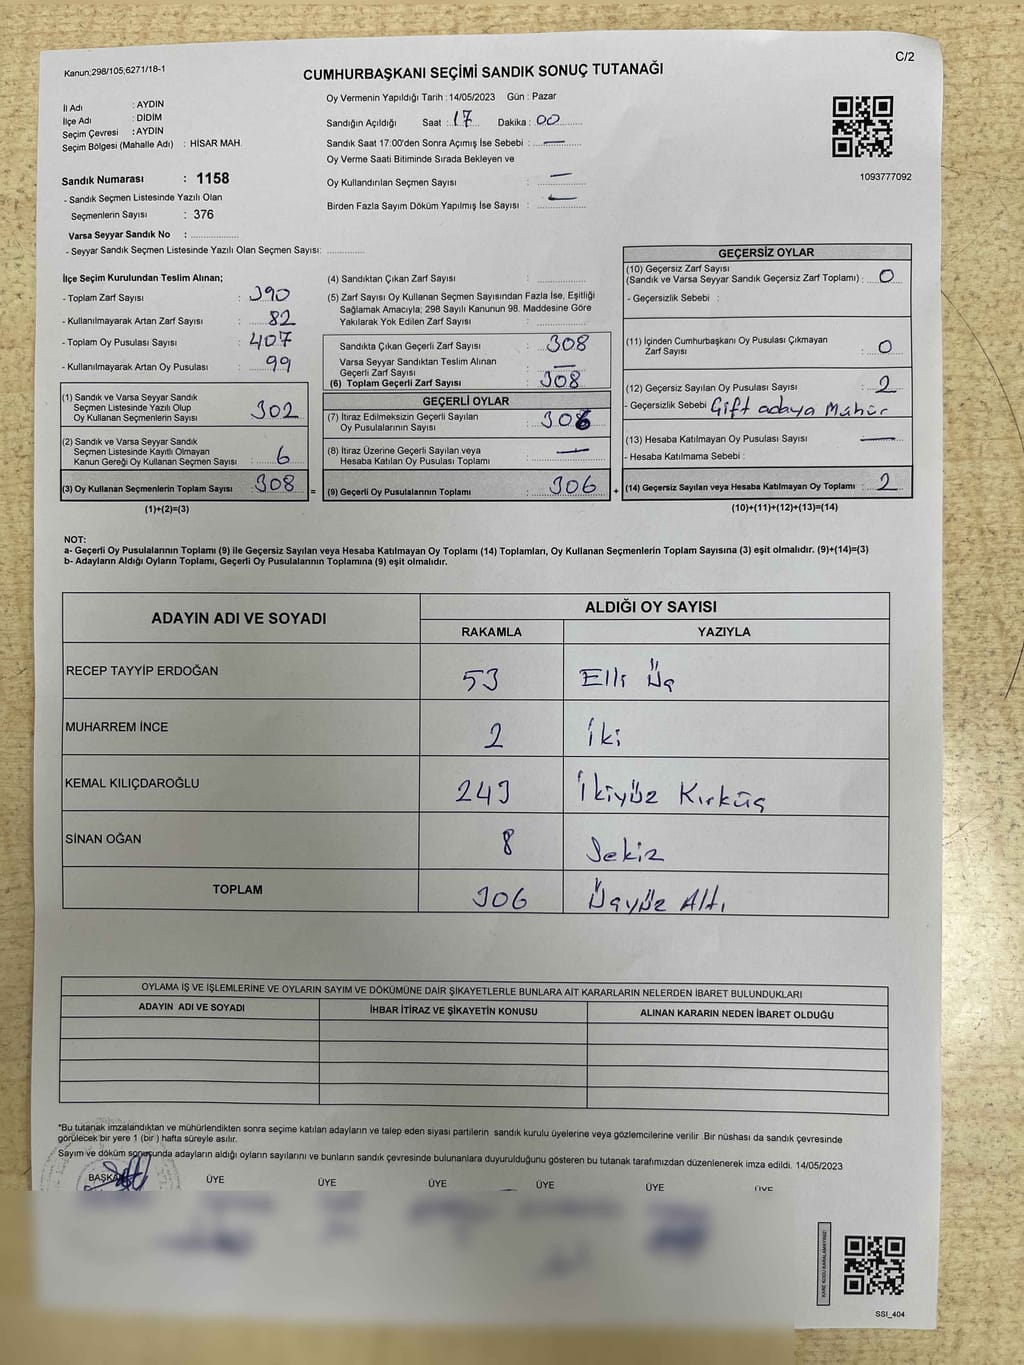 Kanun;298/105;6271/18-1
C/2
CUMHURBAŞKANI SEÇİMİ SANDIK SONUÇ TUTANAĞI
İl Adı : AYDIN
İlçe Adı : DİDİM
Seçim Çevresi : AYDIN
Seçim Bölgesi (Mahalle Adı) : HİSAR MAH.
Sandık Numarası : 1158
- Sandık Seçmen Listesinde Yazılı Olan
Seçmenlerin Sayısı : 376
Varsa Seyyar Sandık No : ................
- Seyyar Sandık Seçmen Listesinde Yazılı Olan Seçmen Sayısı: .............
Oy Vermenin Yapıldığı Tarih : 14/05/2023 Gün : Pazar
Sandığın Açıldığı Saat : 17 Dakika : 00
Sandık Saat 17:00'den Sonra Açımış İse Sebebi : —
Oy Verme Saati Bitiminde Sırada Bekleyen ve
Oy Kullandırılan Seçmen Sayısı : —
Birden Fazla Sayım Döküm Yapılmış İse Sayısı : —
1093777092
İlçe Seçim Kurulundan Teslim Alınan;
- Toplam Zarf Sayısı : 390
- Kullanılmayarak Artan Zarf Sayısı : 82
- Toplam Oy Pusulası Sayısı : 407
- Kullanılmayarak Artan Oy Pusulası : 99
(1) Sandık ve Varsa Seyyar Sandık
Seçmen Listesinde Yazılı Olup
Oy Kullanan Seçmenlerin Sayısı : 302
(2) Sandık ve Varsa Seyyar Sandık
Seçmen Listesinde Kayıtlı Olmayan
Kanun Gereği Oy Kullanan Seçmen Sayısı : 6
(3) Oy Kullanan Seçmenlerin Toplam Sayısı : 308 =
(1)+(2)=(3)
(4) Sandıktan Çıkan Zarf Sayısı : ................
(5) Zarf Sayısı Oy Kullanan Seçmen Sayısından Fazla İse, Eşitliği
Sağlamak Amacıyla; 298 Sayılı Kanunun 98. Maddesine Göre
Yakılarak Yok Edilen Zarf Sayısı : ................
Sandıkta Çıkan Geçerli Zarf Sayısı : 308
Varsa Seyyar Sandıktan Teslim Alınan
Geçerli Zarf Sayısı : —
(6) Toplam Geçerli Zarf Sayısı : 308
GEÇERLİ OYLAR
(7) İtiraz Edilmeksizin Geçerli Sayılan
Oy Pusulalarının Sayısı : 306
(8) İtiraz Üzerine Geçerli Sayılan veya
Hesaba Katılan Oy Pusulası Toplamı : —
(9) Geçerli Oy Pusulalarının Toplamı : 306 +
GEÇERSİZ OYLAR
(10) Geçersiz Zarf Sayısı
(Sandık ve Varsa Seyyar Sandık Geçersiz Zarf Toplamı) : 0
- Geçersizlik Sebebi :
(11) İçinden Cumhurbaşkanı Oy Pusulası Çıkmayan
Zarf Sayısı : 0
(12) Geçersiz Sayılan Oy Pusulası Sayısı : 2
- Geçersizlik Sebebi Çift adaya Mühür
(13) Hesaba Katılmayan Oy Pusulası Sayısı —
- Hesaba Katılmama Sebebi :
(14) Geçersiz Sayılan veya Hesaba Katılmayan Oy Toplamı : 2
(10)+(11)+(12)+(13)=(14)
NOT:
a- Geçerli Oy Pusulalarının Toplamı (9) ile Geçersiz Sayılan veya Hesaba Katılmayan Oy Toplamı (14) Toplamları, Oy Kullanan Seçmenlerin Toplam Sayısına (3) eşit olmalıdır. (9)+(14)=(3)
b- Adayların Aldığı Oyların Toplamı, Geçerli Oy Pusulalarının Toplamına (9) eşit olmalıdır.
ADAYIN ADI VE SOYADI ALDIĞI OY SAYISI
RAKAMLA YAZIYLA
RECEP TAYYİP ERDOĞAN 53 Elli Üç
MUHARREM İNCE 2 İki
KEMAL KILIÇDAROĞLU 243 İkiyüz Kırküç
SİNAN OĞAN 8 Sekiz
TOPLAM 306 Üçyüz Altı
OYLAMA İŞ VE İŞLEMLERİNE VE OYLARIN SAYIM VE DÖKÜMÜNE DAİR ŞİKAYETLERLE BUNLARA AİT KARARLARIN NELERDEN İBARET BULUNDUKLARI
ADAYIN ADI VE SOYADI İHBAR İTİRAZ VE ŞİKAYETİN KONUSU ALINAN KARARIN NEDEN İBARET OLDUĞU
*Bu tutanak imzalandıktan ve mühürlendikten sonra seçime katılan adayların ve talep eden siyasi partilerin sandık kurulu üyelerine veya gözlemcilerine verilir .Bir nüshası da sandık çevresinde
görülecek bir yere 1 (bir ) hafta süreyle asılır.
Sayım ve döküm sonucunda adayların aldığı oyların sayılarını ve bunların sandık çevresinde bulunanlara duyurulduğunu gösteren bu tutanak tarafımızdan düzenlenerek imza edildi. 14/05/2023
BAŞKAN ÜYE ÜYE ÜYE ÜYE ÜYE ÜYE
KARE KODU KARALAMAYINIZ!
SSI_404